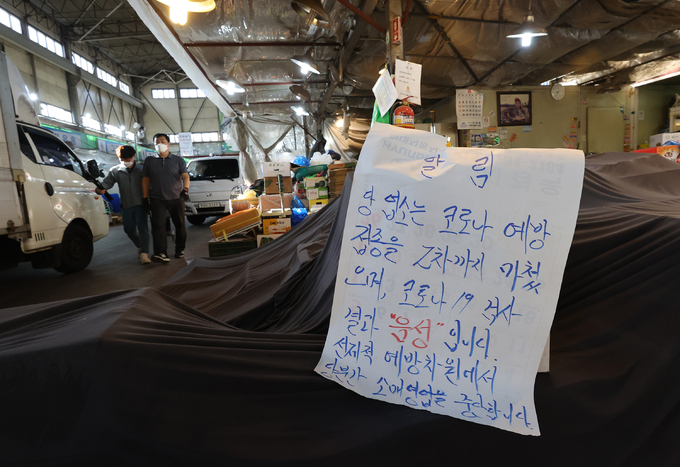 알림
당 업소는 코로나 예방
접종을 2차까지 가쳤
으며, 코로나 19 검사
결과 "음성" 입니다.
선제적 예방차원에서
당분간 소매영업을 중단합니다.